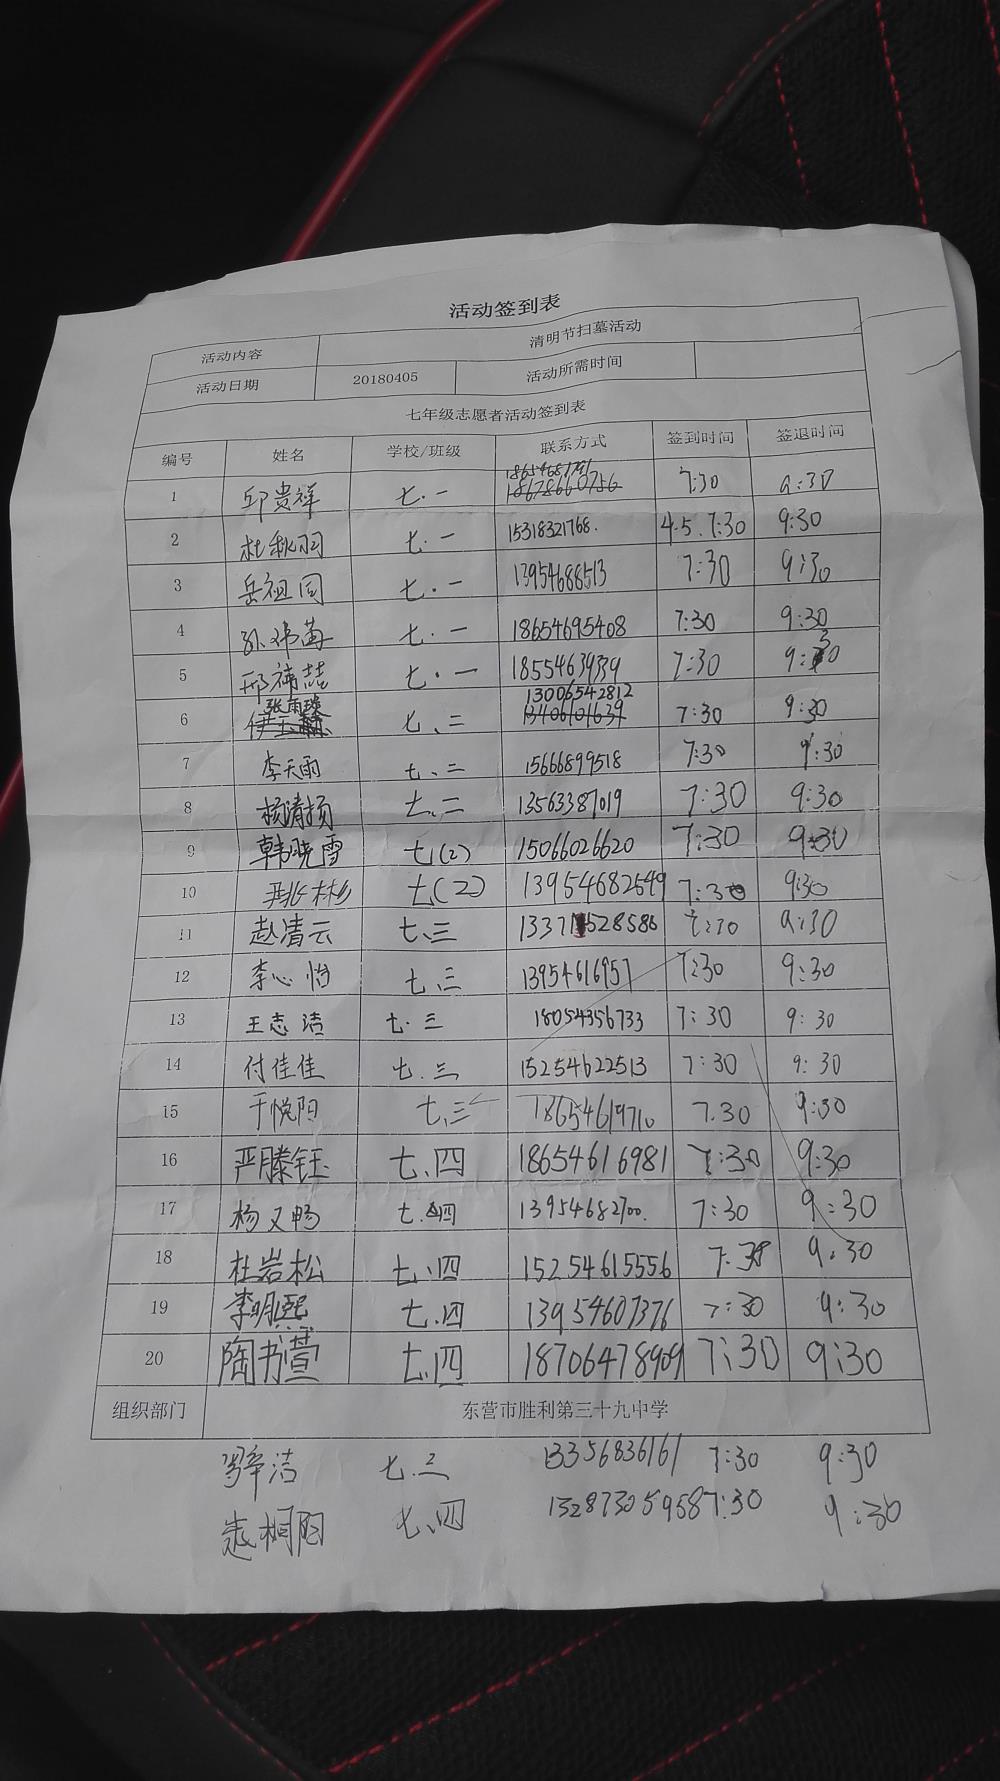 活动签到表
活动内容 清明节扫墓活动
活动日期 20180405 活动所需时间
七年级志愿者活动签到表
编号 姓名 学校/班级 联系方式 签到时间 签退时间
1 邱贵祥 七.一 7:30 9:30
2 杜秋羽 七.一 15318321768. 4.5. 7:30 9:30
3 岳祖同 七.一 13954688513 7:30 9:30
4 七.一 18654695408 7:30 9:30
5 七.一 18554639339 7:30 9:30
6 七、二 13006542812 7:30 9:30
7 李天雨 七、二 15666899518 7:30 9:30
8 杨清扬 七、二 13563387019 7:30 9:30
9 韩晓雪 七(2) 15066026620 7:30 9:30
10 七(2) 13954682549 7:30 9:30
11 赵清云 七、三 7:30 9:30
12 李心怡 七、三 13954616957 7:30 9:30
13 王志洁 七.三 18054356733 7:30 9:30
14 付佳佳 七.三 15254622513 7:30 9:30
15 于悦阳 七、三 18654619710 7.30 9:30
16 严滕钰 七、四 18654616981 7:30 9:30
17 杨又畅 七.四 13954682700. 7:30 9:30
18 杜岩松 七、四 15254615556 7:30 9:30
19 李明熙 七、四 13954607376 7:30 9:30
20 陶书萱 七、四 18706478909 7:30 9:30
组织部门 东营市胜利第三十九中学
洁 七.三 13356836161 7:30 9:30
桐阳 七、四 13287305958 7:30 9:30